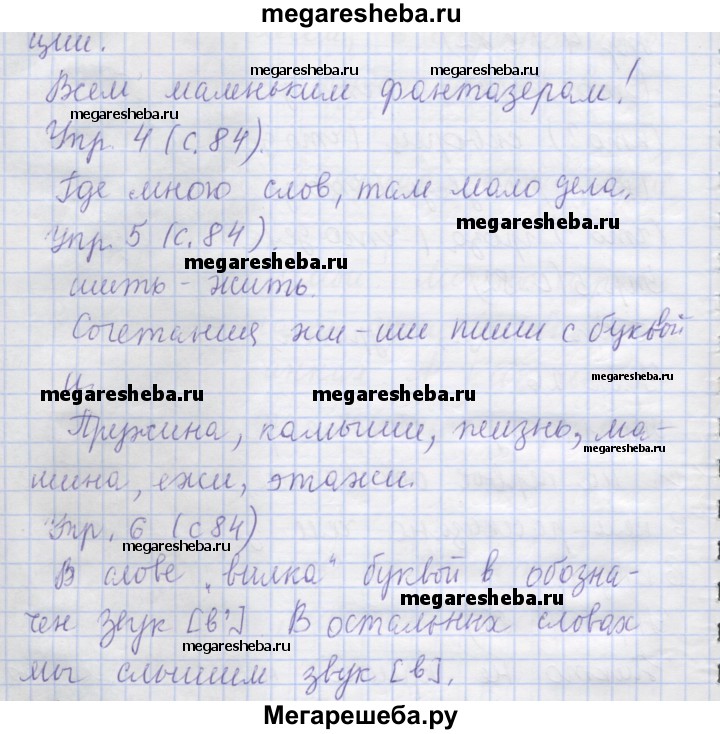 megaresheba.ru
ции.
megaresheba.ru megaresheba.ru
Всем маленьким фантазерам!
megaresheba.ru
Упр. 4 (с. 84).
Где много слов, там мало дела.
megaresheba.ru
Упр. 5 (с. 84).
megaresheba.ru
шить - жить.
Сочетания жи-ши пиши с буквой
megaresheba.ru
и.
megaresheba.ru megaresheba.ru
Пружина, камыши, жизнь, ма-
megaresheba.ru
шина, ежи, этажи.
Упр. 6 (с 84)
megaresheba.ru
В слове „вилка" буквой в обозна-
megaresheba.ru
чен звук [в'] В остальных словах
мы слышим звук [в].
Мегарешеба.ру